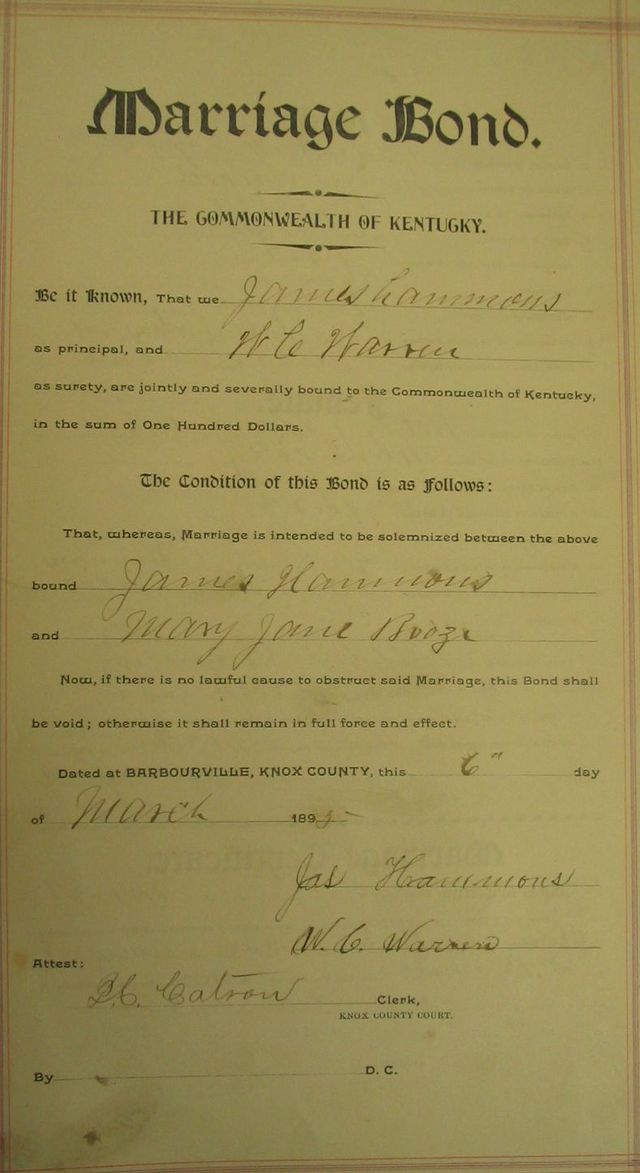 Marriage Bond.
THE COMMONWEALTH OF KENTUCKY.
Be it Known, That we James Hammons
as principal, and W C Warren
as surety, are jointly and severally bound to the Commonwealth of Kentucky,
in the sum of One Hundred Dollars.
The Condition of this Bond is as Follows:
That, whereas, Marriage is intended to be solemnized between the above
bound James Hammons
and Mary Jane Booze
Now, if there is no lawful cause to obstruct said Marriage, this Bond shall
be void; otherwise it shall remain in full force and effect.
Dated at BARBOURVILLE, KNOX COUNTY, this 6" day
of March 1895
Jas Hammons
W. C. Warren
Attest:
Catron Clerk,
KNOX COUNTY COURT.
By D. C.